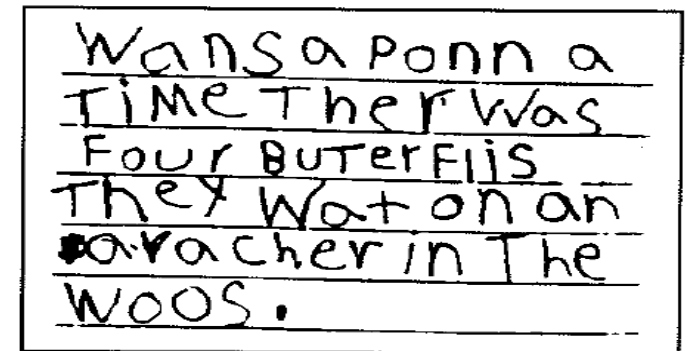 Wans a ponn a
Time Ther Was
Four Buterflis
They Wat on an
avacher in The
Woos.